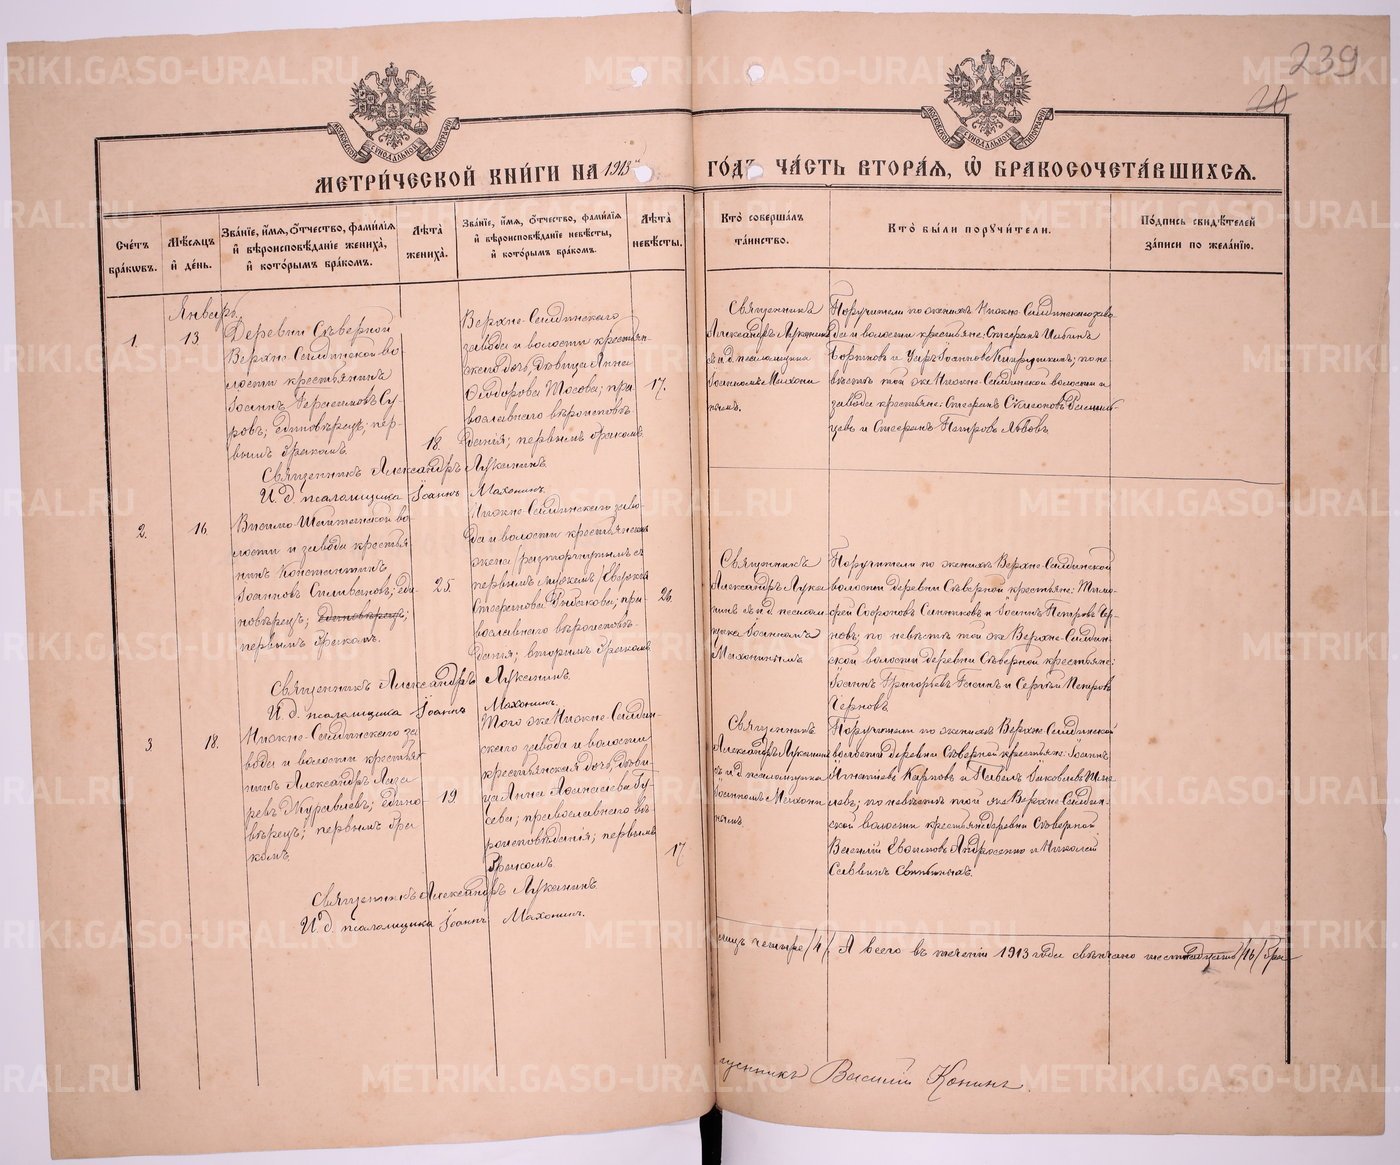 239
20
МЕТРИ́ЧЕСКОЙ КНИ́ГИ НА 1913 ГО́ДЪ ЧА́СТЬ ВТОРА́Я, Ѡ БРАКОСОЧЕТА́ВШИХСЯ.
Сче́тъ бра́кѡвъ.
Мѣ́сяцъ и҆ де́нь.
Зва́нїе, и҆́мя, ѻ҆́тчество, фами́лїя и҆ вѣроисповѣ́данїе жениха̀, и҆ кото́рымъ бра́комъ.
Лѣ́та жениха̀.
Зва́нїе, и҆́мя, ѻ҆́тчество, фами́лїя и҆ вѣроисповѣ́данїе невѣ́сты, и҆ кото́рымъ бра́комъ.
Лѣ́та невѣ́сты.
Кто̀ соверша́лъ та́инство.
Кто̀ бы́ли поручи́тели.
По́дпись свидѣ́телей за́писи по жела́нїю.
Январь.
1.
13
Деревни Сѣверной
Верхне-Салдинской во
лости крестьянинъ
Іоаннъ Герасимовъ Су
ровъ; единовѣрецъ; пер
вымъ бракомъ.
18.
Верхне-Салдинскаго
завода и волости крестьян
ская дочь, дѣвица Анна
Ѳеодорова Носова; пра
вославнаго вѣроисповѣ
данія; первымъ бракомъ.
17.
Священникъ
Александръ Луканинъ
съ и.д. псаломщика
Іоанномъ Махони
нымъ.
Поручители по женихѣ Нижне-Салдинскаго заво
да и волости крестьяне: Стефанъ
и
по не
вѣстѣ той же Нижне-Салдинской волости и
завода крестьяне: Стефанъ Симеоновъ
и Стефанъ Петровъ Львовъ.
Священникъ Александръ Луканинъ.
И. д. псаломщика Іоаннъ Махонинъ.
2.
16
Висимо-Шайтанской во
лости и завода крестья
нинъ Константинъ
Іоанновъ Силивановъ; еди
новѣрецъ; единовѣрецъ;
первымъ бракомъ.
25.
Нижне-Салдинскаго заво
да и волости крестьянская
жена /расторгнутымъ съ
первымъ мужемъ/
православнаго вѣроисповѣ
данія; вторымъ бракомъ.
26.
Священникъ
Александръ Лука
нинъ съ и.д. псалом
щика Іоанномъ
Махонинымъ.
Поручители по женихѣ Верхне-Салдинской
волости деревни Сѣверной крестьяне: Тимо
фей Софроновъ и Іоаннъ Петровъ Чер
новъ; по невѣстѣ той же Верхне-Салдин
ской волости деревни Сѣверной крестьяне:
Іоаннъ Григорьевъ и Сергѣй Петровъ
Черновъ
Священникъ Александръ Луканинъ.
И. д. псаломщика Іоаннъ Махонинъ.
3
18.
Нижне-Салдинскаго за
вода и волости крестья
нинъ Александръ Лаза
ревъ Журавлевъ; едино
вѣрецъ; первымъ бра
комъ.
19
Того же Нижне-Салдин
скаго завода и волости
крестьянская дочь, дѣви
ца Анна Аѳанасіева Гу
сева; православнаго вѣ
роисповѣданія; первымъ
бракомъ.
17
Священникъ
Александръ Луканинъ
съ и.д. псаломщика
Іоанномъ Махони
нымъ
Поручители по женихѣ Верхне-Салдинской
волости деревни Сѣверной крестьяне: Іоаннъ
Игнатіевъ Карповъ и Павелъ Іаковлевъ
по невѣстѣ той же Верхне-Салдин
ской волости крестьяне деревни Сѣверной
Василій Евѳимовъ Андросенко и Николай
Саввинъ
Священникъ Александръ Луканинъ.
И. д. псаломщика Іоаннъ Махонинъ.
сяцъ четыре /4/. А всего въ теченіи 1913 года свѣнчано шестнадцать /16/ бра
щенникъ Василій Конинъ.
METRIKI.GASO-URAL.RU